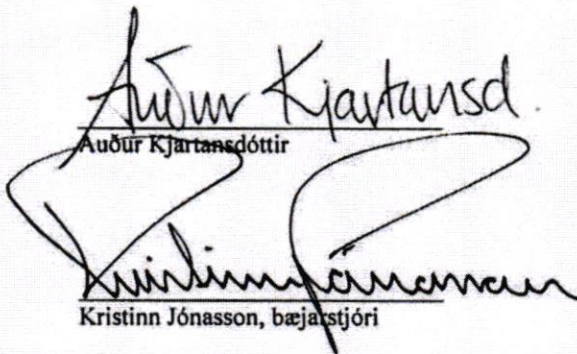 Auður Kjartansd.
Auður Kjartansdóttir
Kristinn Jónasson
Kristinn Jónasson, bæjarstjóri